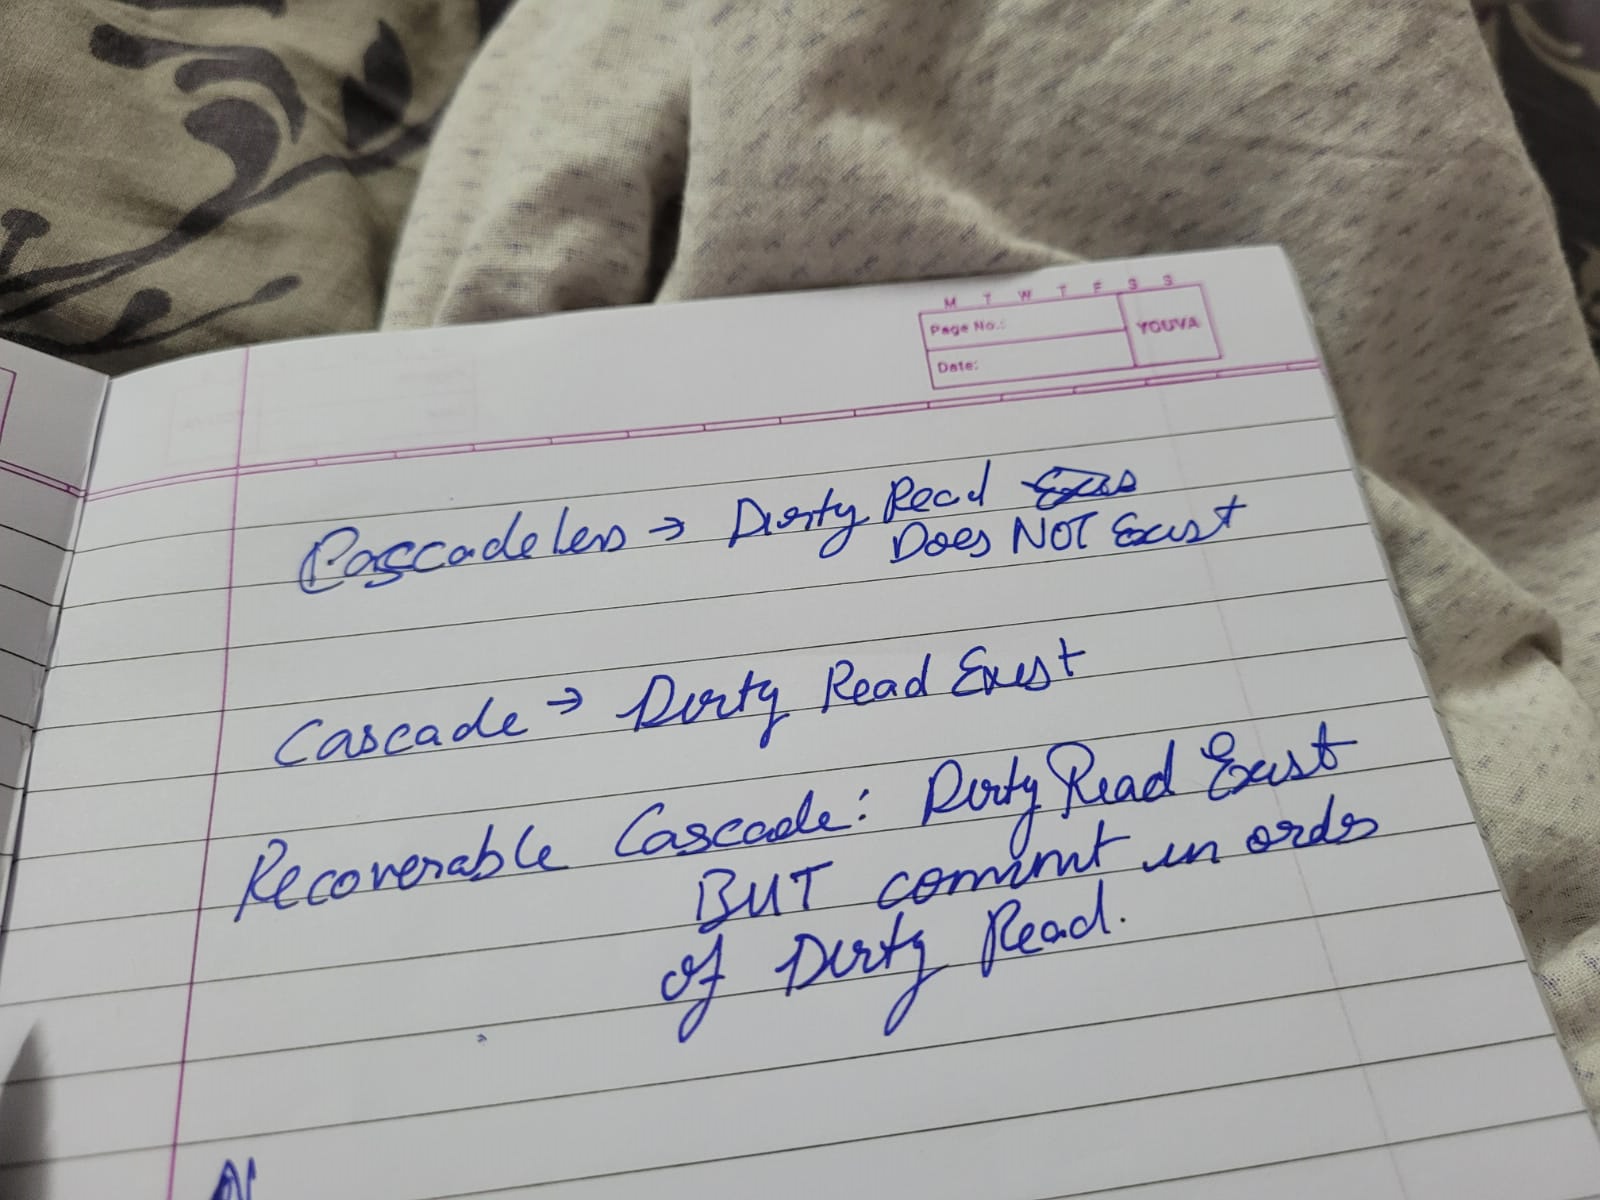 M T W T F S S
Page No.:
YOUVA
Date:
Cascadeless → Dirty Read
Does NOT Exist
Cascade → Dirty Read Exist
Recoverable Cascade: Dirty Read Exist
BUT commit in order
of Dirty Read.